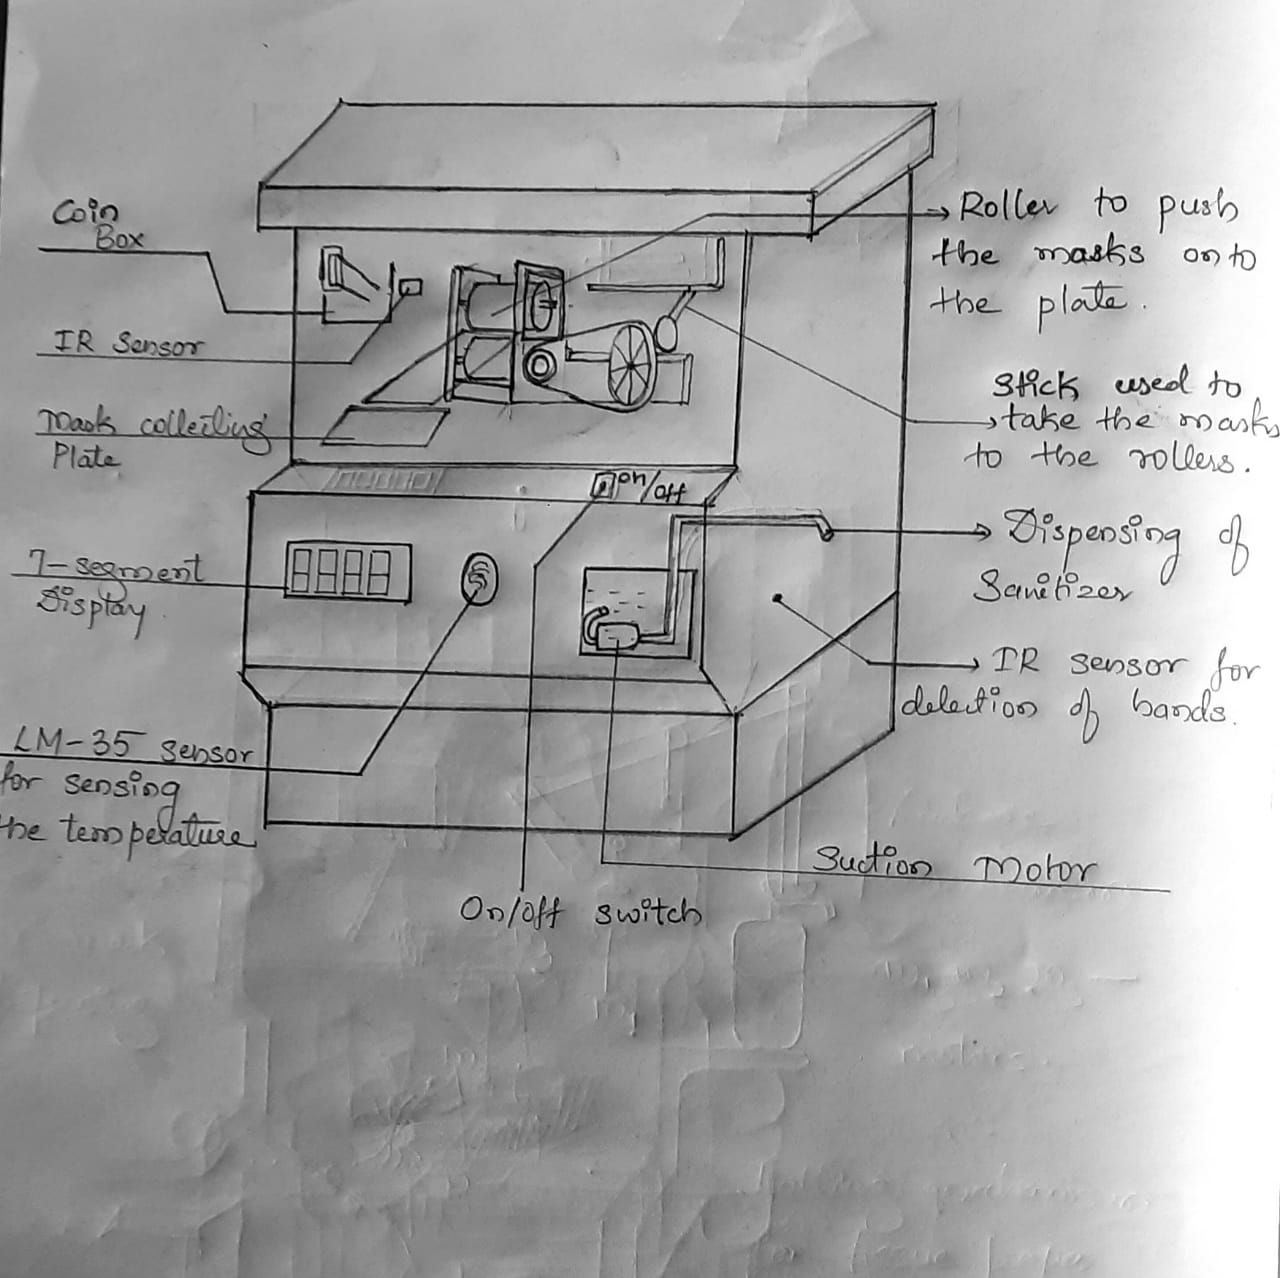 Coin
Box
IR Sensor
Mask collecting
Plate
7-segment
Display.
LM-35 sensor
for sensing
the temperature
on/off
8888
Roller to push
the masks onto
the plate.
Stick used to
take the masks
to the rollers.
Dispensing of
Sanitizer
IR sensor for
detection of hands.
Suction Motor
On/off switch